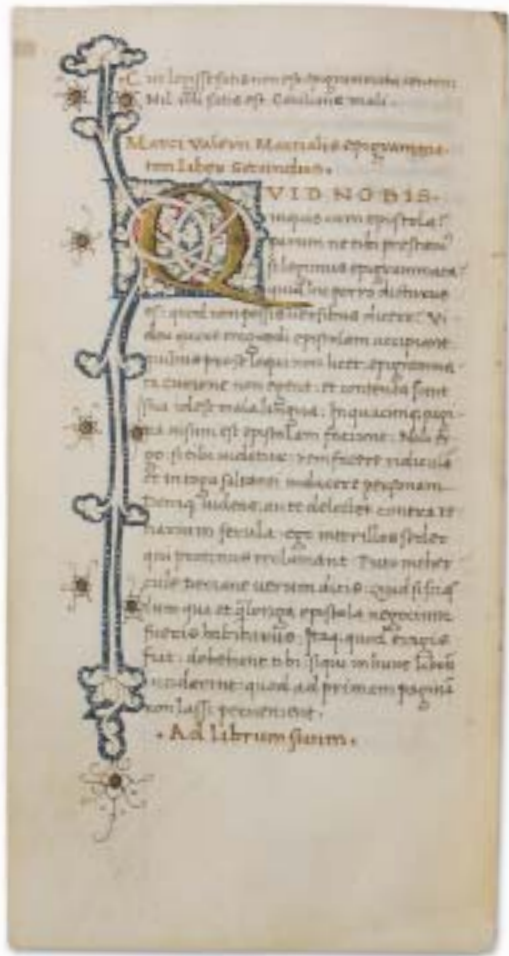 Cui legisse satis non est epigrammata centum
Nil illi satis est Caeciliane mali.
Marci Valerii Martialis epigramma-
ton liber Secundus.
QVID NOBIS.
inquis cum epistola?
parum ne tibi prestam9
si legimus epigrammata?
quid hic porro dicturus
es: quod non possis uersibus dicere. Vi
deo quare tragoedi epistolam accipiant
quibus pro se loqui non licet. epigramma-
ta curione non egent: et contenta sunt
sua idest mala lingua. In quacunq pagi-
na uisum est epistolam faciunt. Noli er
go si tibi uidetur: rem facere ridiculā
et in toga saltantis inducere personam.
Deniq uideris: an te delectet contra re
tiarium ferula. ego inter illos sedeo
qui protinus reclamant. Puto meher
cule Deciane uerum dicis. quid si scias
cum qua et q̄ longa epistola negocium
fueris habiturus. Itaq quod exigis
fiat. debebunt tibi siqui in hunc librū
inciderint quod ad primam paginā
non lassi peruenient.
.Ad librum suum.